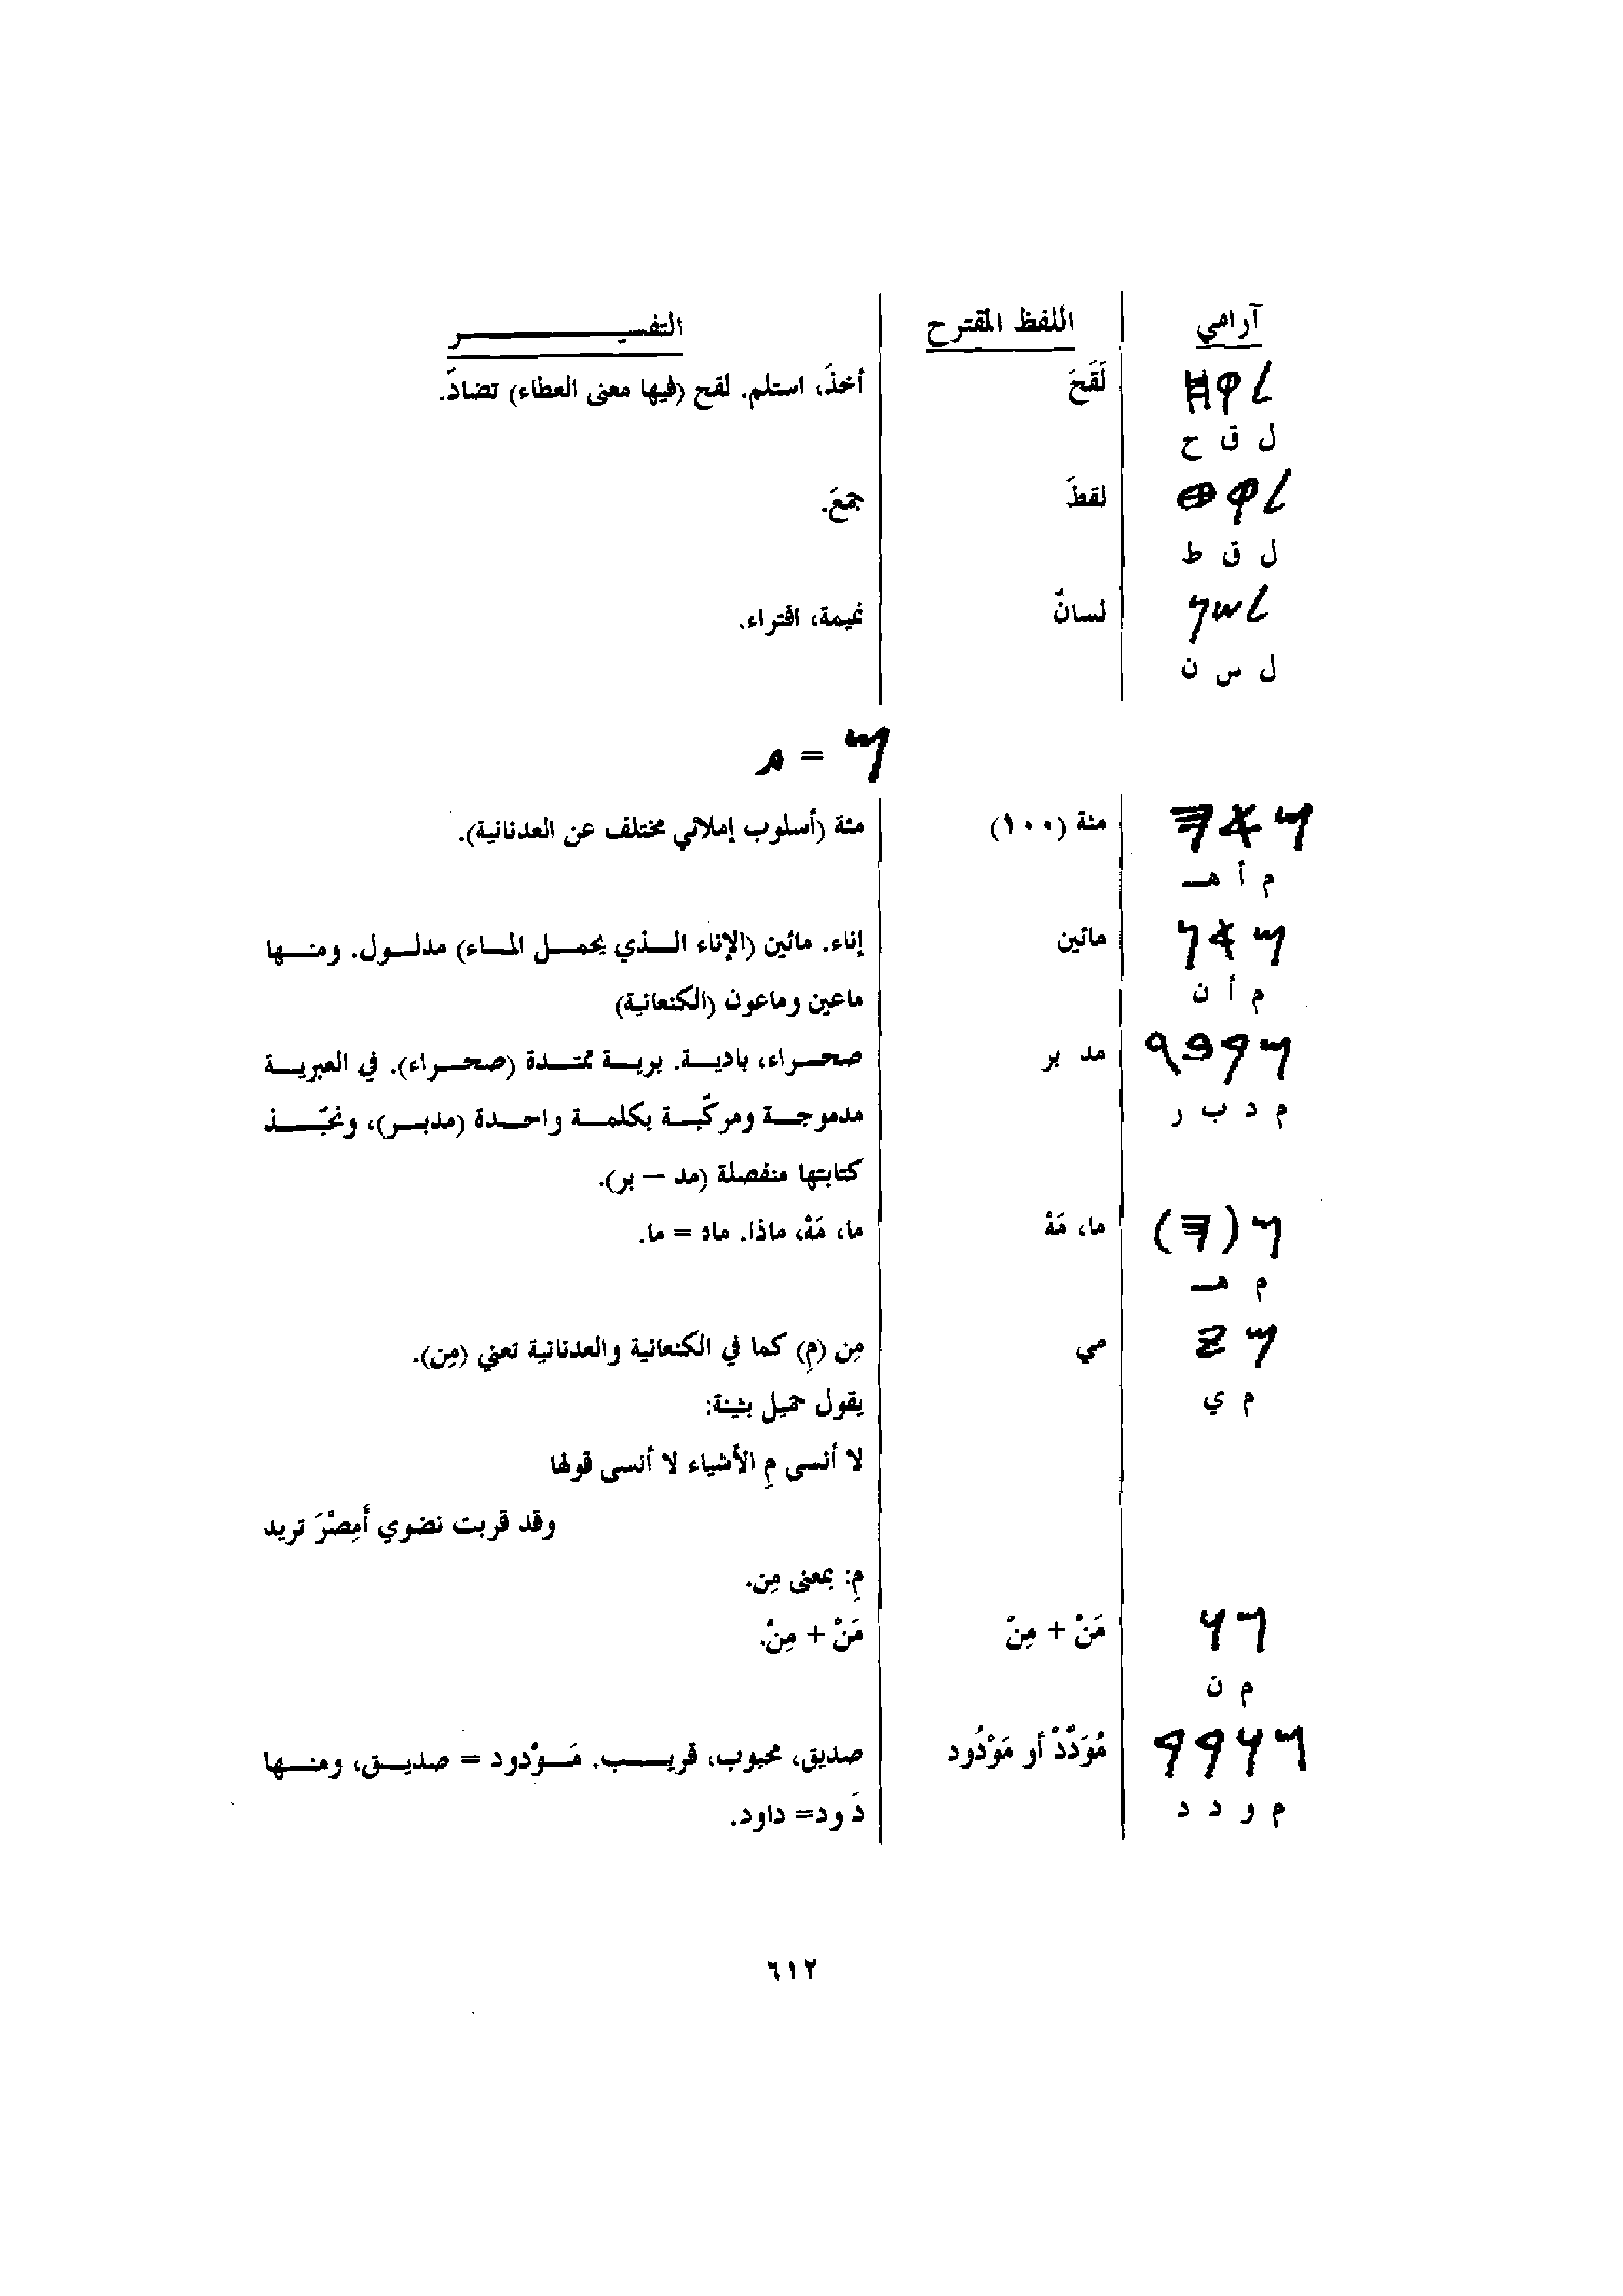 آرامي اللفظ المقترح التفسيـــــــر
𐤋𐤒𐤇 لَقَحَ أخذَ، استلم. لقح (فيها معنى العطاء) تضادّ.
ل ق ح
𐤋𐤒𐤈 لقطَ جمعَ.
ل ق ط
𐤋𐤔𐤍 لسانٌ نميمة، افتراء.
ل س ن
𐤌 = م
𐤌𐤀𐤄 مئة (١٠٠) مئة (أسلوب إملائي مختلف عن العدنانية).
م أ هـ
𐤌𐤀𐤍 مائين إناء. مائين (الإناء الـذي يحمـل المـاء) مدلـول. ومنـها
م أ ن ماعين وماعون (الكنعانية)
𐤌𐤃𐤁𐤓 مد بر صحـراء، باديـة. بريـة ممتـدة (صحـراء). في العبريـة
م د ب ر مدموجـة ومركّبـة بكلمـة واحـدة (مدبـر)، ونحبّـذ
كتابتها منفصلة (مد – بر).
𐤌(𐤄) ما، مَهْ ما، مَهْ، ماذا. ماه = ما.
م هـ
𐤌𐤉 مي مِن (مِ) كما في الكنعانية والعدنانية تعني (مِن).
م ي يقول جميل بثينة:
لا أنسى مِ الأشياء لا أنسى قولها
وقد قربت نضوي أَمِصْرَ تريد
مِ: بمعنى مِن.
𐤌𐤍 مَنْ + مِنْ مَنْ + مِنْ.
م ن
𐤌𐤅𐤃𐤃 مُوَدَّدْ أو مَوْدُود صديق، محبوب، قريـب. مَـوْدود = صديـق، ومنـها
م و د د دَ ود= داود.
٦١٢